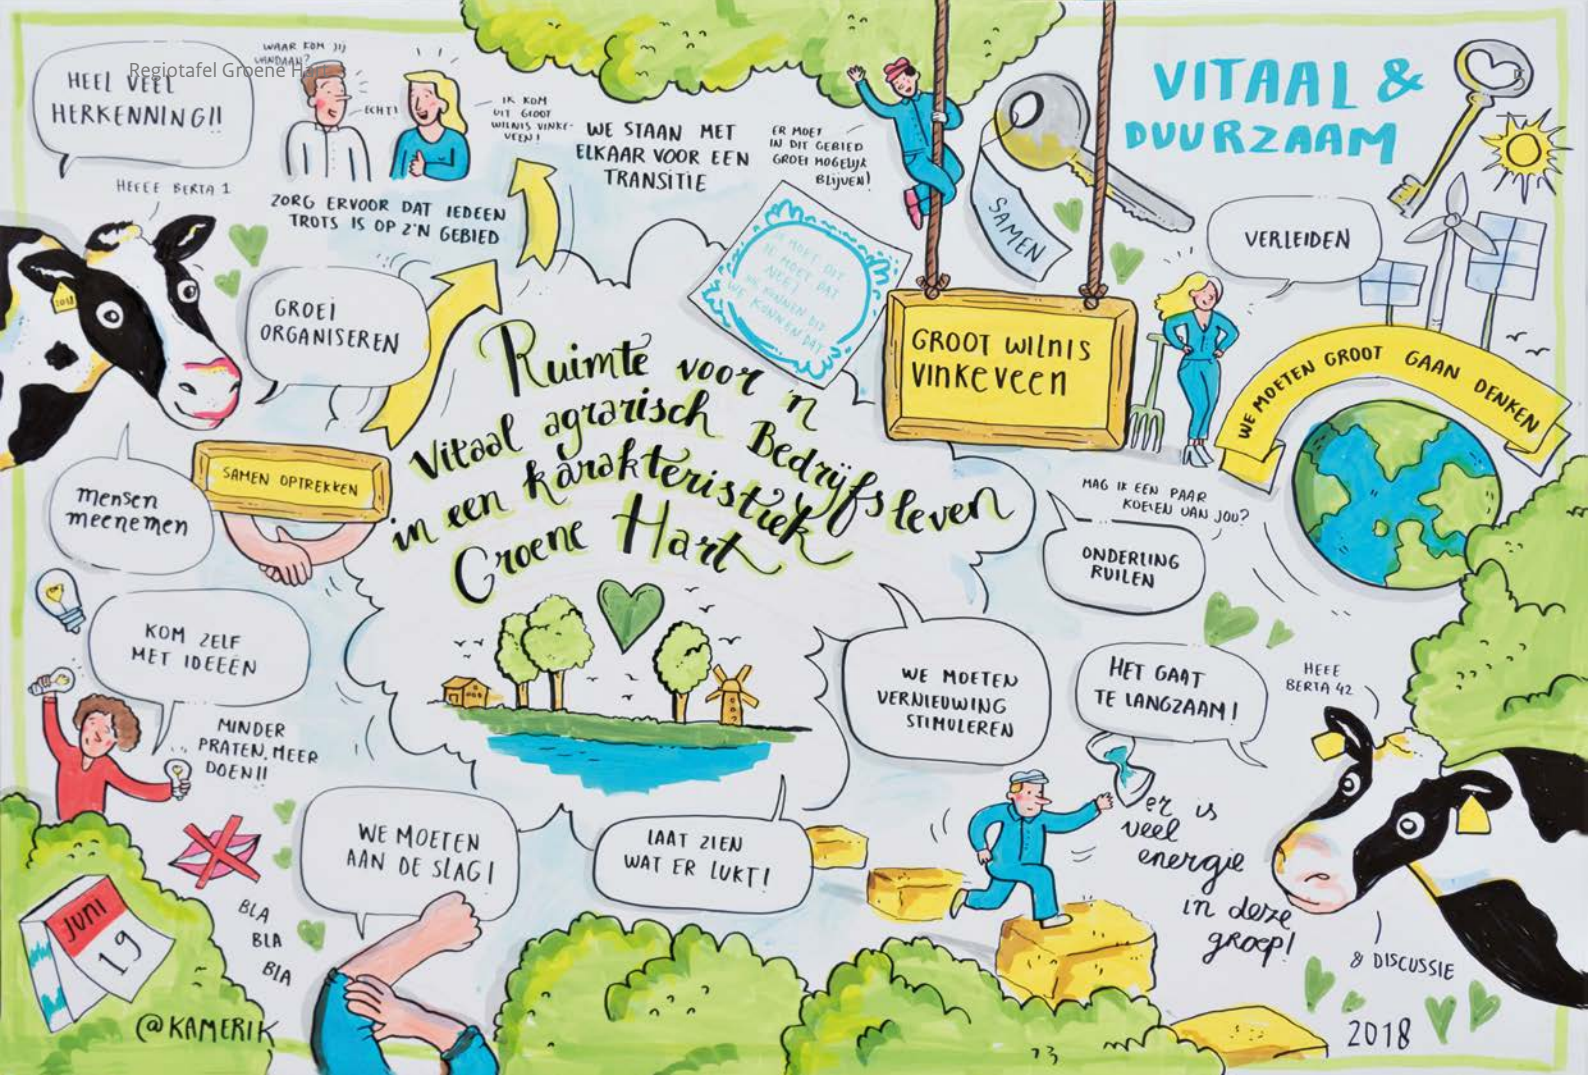 Regiotafel Groene Hart
HEEL VEEL
HERKENNING!!
WAAR KOM JIJ
VANDAAN?
ECHT!
IK KOM
UIT GROOT
WILNIS VINKE-
VEEN!
WE STAAN MET
ELKAAR VOOR EEN
TRANSITIE
ER MOET
IN DIT GEBIED
GROEI MOGELIJK
BLIJVEN!
SAMEN
VITAAL &
DUURZAAM
HEEEE BERTA 1
ZORG ERVOOR DAT IEDEEN
TROTS IS OP Z'N GEBIED
VERLEIDEN
GROEI
ORGANISEREN
MOET DIT
IK MOET DAT
NEE!
WE KUNNEN DIT
WE KUNNEN DAT
GROOT WILNIS
VINKEVEEN
WE MOETEN GROOT GAAN DENKEN
Ruimte voor 'n
Vitaal agrarisch Bedrijfsleven
in een karakteristiek
Groene Hart
SAMEN OPTREKKEN
mensen
meenemen
MAG IK EEN PAAR
KOEIEN VAN JOU?
ONDERLING
RUILEN
KOM ZELF
MET IDEEËN
MINDER
PRATEN, MEER
DOEN!!
WE MOETEN
VERNIEUWING
STIMULEREN
HET GAAT
TE LANGZAAM!
HEEE
BERTA 42
WE MOETEN
AAN DE SLAG!
LAAT ZIEN
WAT ER LUKT!
er is
veel
energie
in deze
groep!
& DISCUSSIE
JUNI
19
BLA
BLA
BLA
@KAMERIK
2018